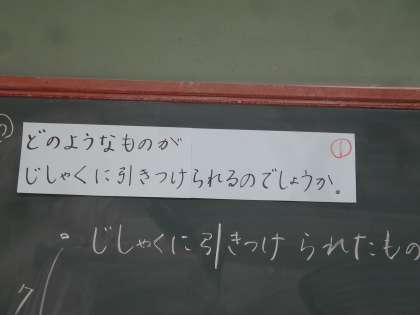 どのようなものが
じしゃくに引きつけられるのでしょうか。
①
・じしゃくに引きつけられたもの
ク